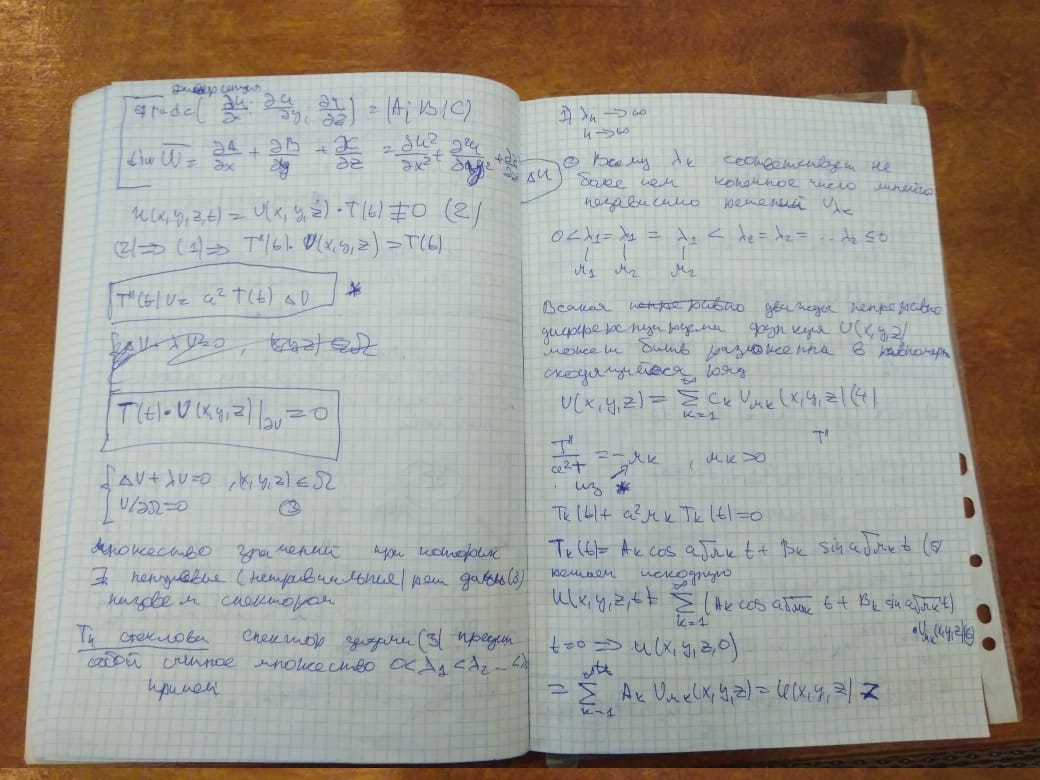 дивергенция
grad( ∂u/∂x; ∂u/∂y; ∂u/∂z) = (A; B; C)
div W = ∂A/∂x + ∂B/∂y + ∂C/∂z = ∂u²/∂x² + ∂²u/∂y² +
ΔU
u(x,y,z,t) = U(x,y,z)·T(t) ≢ 0 (2)
(2) ⇒ (1) ⇒ T''(t)·U(x,y,z) = T(t)
T''(t)U = a² T(t) ΔU *
T(t)·U(x,y,z)|∂υ = 0
{ΔU + λU = 0 , (x,y,z) ∈ Ω
U/∂Ω = 0 (3)
множество значений при которых
∃ ненулевые (нетривиальные) реш (3)
назовем спектром
Стеклова спектор задачи (3)
собой счетное множество 0<λ₁<λ₂
причем
1) λn → ∞
n → ∞
Всякому λk соответствует не
более чем конечное число линейно
независимо решений Uλk
0 < λ₁ = λ₁ = λ₁ < λ₂ = λ₂ = ... λ₂ ≤ 0
μ₁ μ₂ μ₂
Всякая непрерывно дважды непрерывно
дифференцируема функция U(x,y,z)
может быть разложенна в равномерн
сходящийся ряд
U(x,y,z) = ∞∑k=1 Ck Uμk(x,y,z) (4)
T''
T''/a²T = -μk , μk>0
из *
Tk(t) + a²μk Tk(t) = 0
Tk(t) = Ak cos a√μk t + Bk sin a√μk t (5)
решаем исходную
u(x,y,z,t) = ∞∑k=1 (Ak cos a√μk t + Bk sin a√μk t)
·Uμk(x,y,z) (6)
t=0 ⇒ u(x,y,z,0)
= ∑k=1 Ak Uμk(x,y,z) = φ(x,y,z)